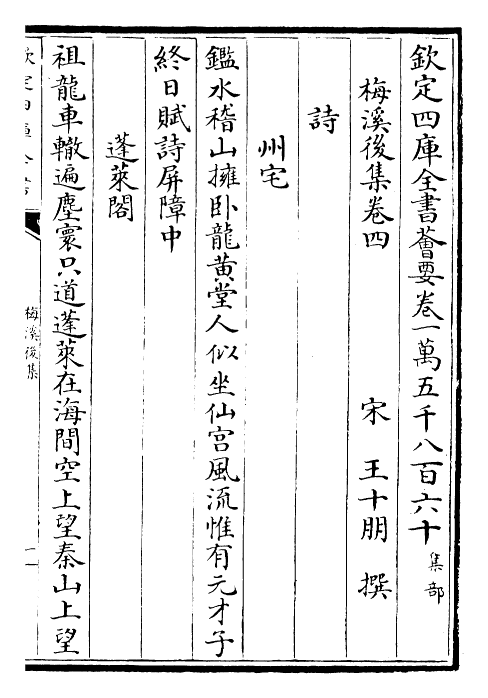 欽定四庫全書薈要卷一萬五千八百六十 集部
梅溪後集卷四
宋 王十朋 撰
詩
州宅
鑑水稽山擁卧龍黄堂人似坐仙宫風流惟有元才子
終日賦詩屏障中
蓬萊閣
祖龍車轍遍塵寰只道蓬萊在海間空上望秦山上望
梅溪後集